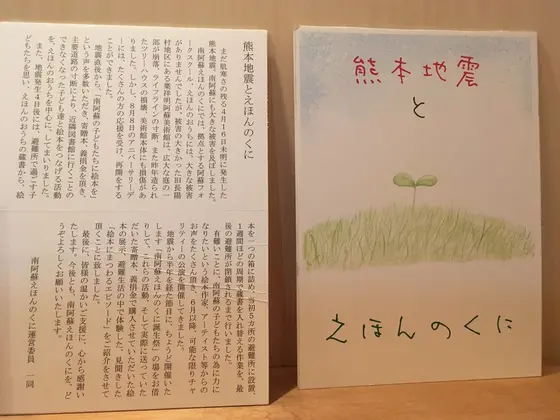 熊本地震とえほんのくに
まだ肌寒さの残る4月16日未明に発生した
熊本地震、南阿蘇にも大きな被害を及ぼしました。
南阿蘇えほんのくにでは、拠点とする阿蘇フォ
ークスクール・えほんのおうちには、大きな被害
がありませんでしたが、被害の大きかった旧長陽
村地区にある葉祥明阿蘇美術館は、広大な庭の一
部が崩落、ライフラインの寸断、また昨年造られ
たツリーハウスの損壊、美術館本体にも損傷があ
りました。しかし、8月8日のアニバーサリーデ
ーには、たくさんの方の応援を受け、再開をする
ことができました。
地震直後から、「南阿蘇の子どもたちに絵本を」
という声を多数いただき、寄贈本、義捐金を頂き、
主要道路の寸断により、近隣図書館に行くことの
できなくなった子ども達と絵本をつなげる活動
を、えほんのおうちを中心に、してまいりました。
また、地震発生4日後には、避難所で過ごす子
どもたちを思い、えほんのおうちの蔵書から、絵
本を一つの箱に詰め、当初5カ所の避難所に設置、
1週間ほどの周期で蔵書を入れ替える作業を、最
後の避難所が閉鎖されるまで行いました。
有難いことに、南阿蘇の子どもたちの為に力に
なりたいという絵本作家、アーティスト等からの
お声をたくさん頂き、6月以降、可能な限りチャ
リティーの公演を開催してきました。
地震から半年を経た節目に、ちょうど開催いた
します「南阿蘇えほんのくに誕生祭」の場をお借
りして、これらの活動、そして実際に送っていた
だいた寄贈本、義捐金で購入させていただいた絵
本の展示、避難生活の中で体験した、見聞きした
「絵本にまつわるエピソード」をご紹介をさせて
頂くことに致しました。
最後に、皆様の温かいご支援に、心から感謝い
たします。今後とも、南阿蘇えほんのくにを、ど
うぞよろしくお願いいたします。
南阿蘇えほんのくに運営委員 一同
熊本地震
と
えほんのくに